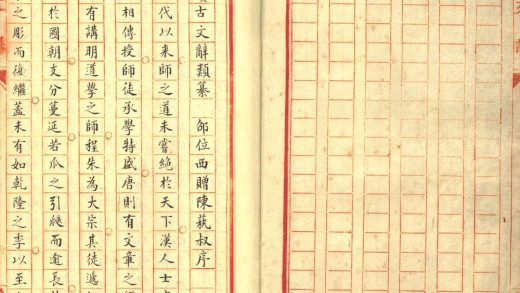 古文辭類纂 邵位西贈陳蓺叔序
代以來師之道未嘗絕於天下漢人士
相傳授師徒承學特盛唐則有文章之
有講明道學之師程朱為大宗其徒遞
於國朝支分蔓延若瓜之引瓞而逾長
之彫而復繼蓋未有如乾隆之季以至